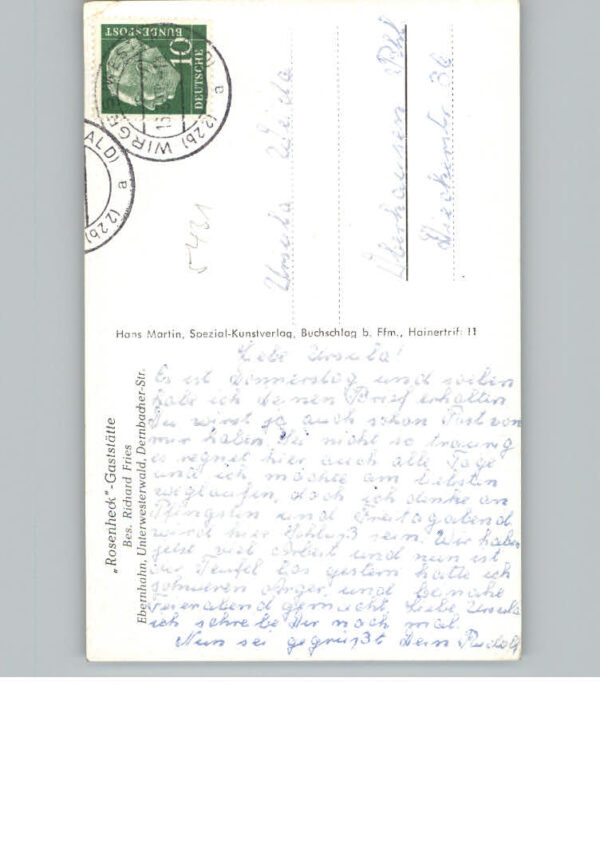 DEUTSCHE
BUNDESPOST
10
(22b) WIRGES
a
ALD)
a
(22b)
5431
Ursula
Oberhausen Rhl
36
Hans Martin, Spezial-Kunstverlag, Buchschlag b. Ffm., Hainertrift 11
„Rosenheck"-Gaststätte
Bes. Richard Fries
Ebernhahn, Unterwesterwald, Dernbacher-Str.
Liebe Ursula!
Es ist Donnerstag und soeben
habe ich deinen Brief erhalten
Du wirst ja auch schon Post von
mir haben. Sei nicht so traurig
es regnet hier auch alle Tage
und ich möchte am liebsten
weglaufen, doch ich denke an
Pfingsten und Freitagabend
wird hier Schluß sein. Wir haben
jetzt viel Arbeit und nun ist
der Teufel los gestern hatte ich
schweren Ärger und beinahe
Feierabend gemacht, Liebe Ursula
ich schreibe Dir noch mal.
Nun sei gegrüßt Dein Rudolf